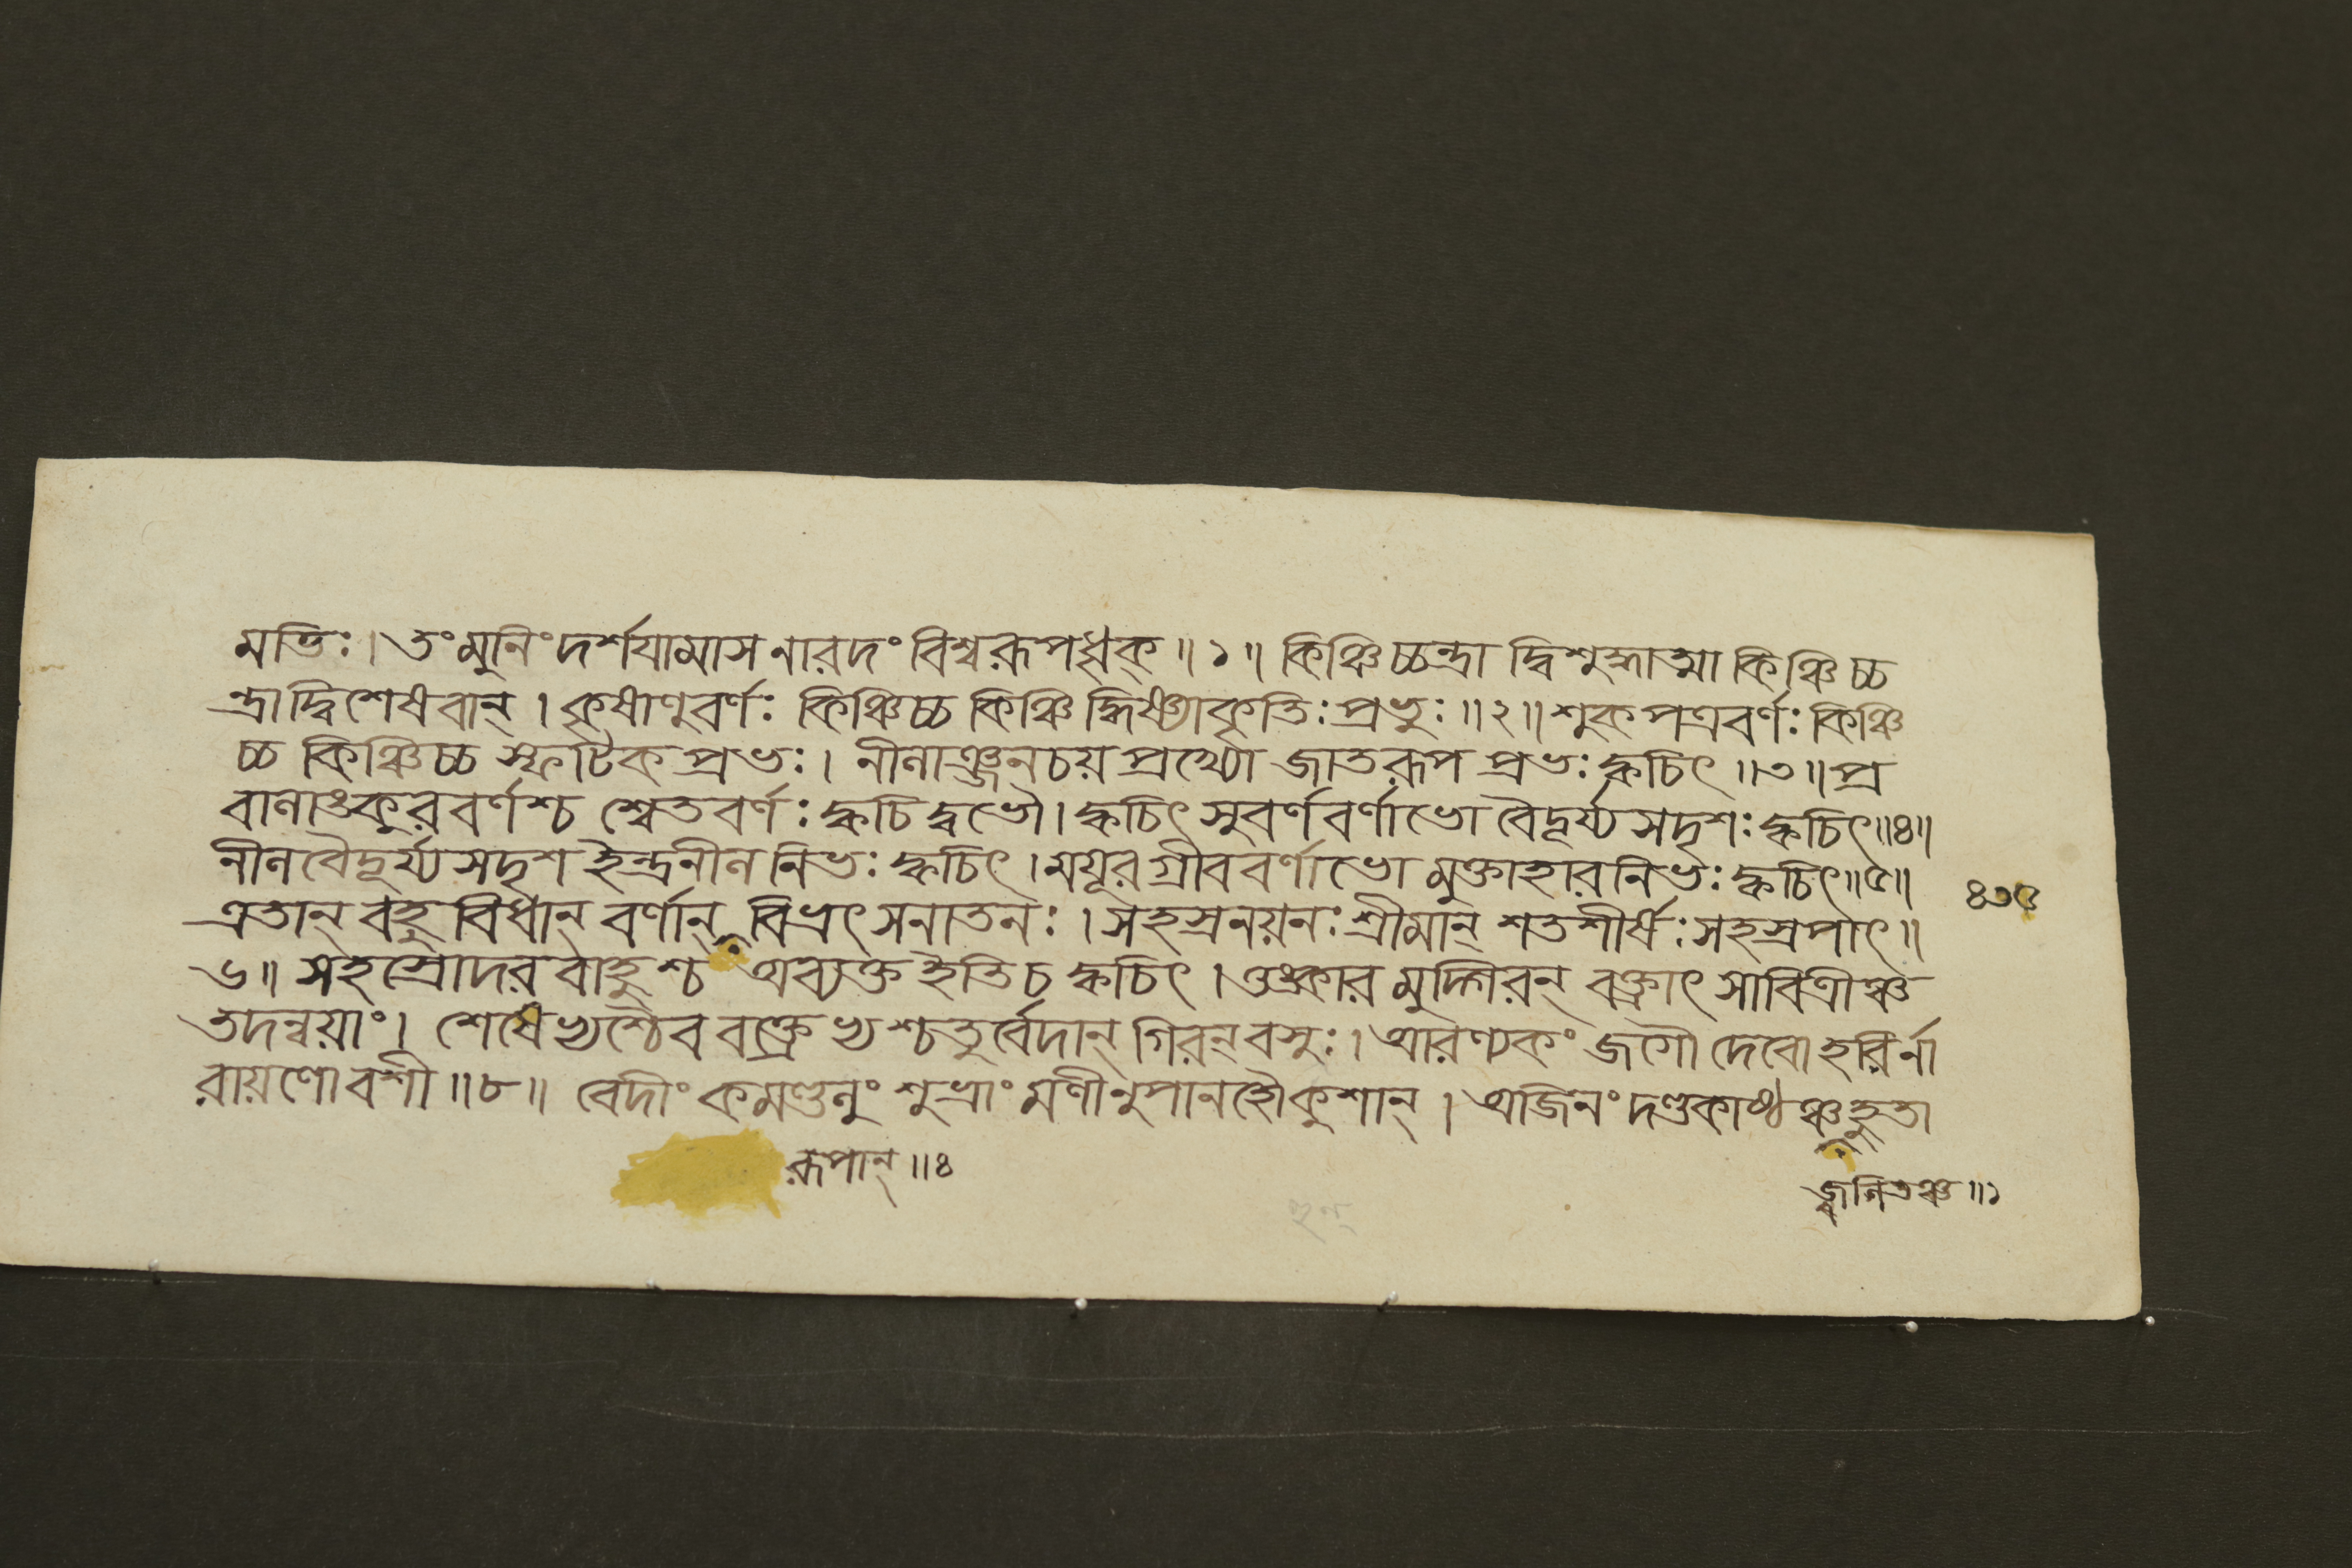 মতিঃ। তং মুনিং দর্শয়ামাস নারদং বিশ্বরূপধৃক্॥১॥ কিঞ্চিচ্চন্দ্রাদ্বিশুদ্ধাত্মা কিঞ্চিচ্চ
ন্দ্রাদ্বিশেষবান্। কৃষাণুবর্ণঃ কিঞ্চিচ্চ কিঞ্চিদ্ধিষ্ণ্যাকৃতিঃ প্রভুঃ॥২॥ শুকপত্রবর্ণঃ কিঞ্চি
চ্চ কিঞ্চিচ্চ স্ফটিকপ্রভঃ। নীলাঞ্জনচয়প্রখ্যো জাতরূপপ্রভঃ ক্বচিৎ॥৩॥ প্র
বালাঙ্কুরবর্ণশ্চ শ্বেতবর্ণঃ ক্বচিদ্বভৌ। ক্বচিৎ সুবর্ণবর্ণাভো বৈদূর্য্যসদৃশঃ ক্বচিৎ॥৪॥
নীলবৈদূর্য্যসদৃশ ইন্দ্রনীলনিভঃ ক্বচিৎ। ময়ূরগ্রীববর্ণাভো মুক্তাহারনিভঃ ক্বচিৎ॥৫॥
এতান্ বহুবিধান্ বর্ণান্ বিভ্রৎ সনাতনঃ। সহস্রনয়নঃ শ্রীমান্ শতশীর্ষঃ সহস্রপাৎ॥
৬॥ সহস্রোদরবাহুশ্চ অব্যক্ত ইতি চ ক্বচিৎ। ওঙ্কারমুদ্গিরন্ বক্ত্রাৎ সাবিত্রীঞ্চ
তদন্বয়াং। শেষেভ্যশ্চৈব বক্ত্রেভ্যশ্চতুর্ব্বেদান্ গিরন্ বসুঃ। আরণ্যকং জগৌ দেবো হরির্না
রায়ণো বশী॥৮॥ বেদীং কমণ্ডলুং শুভ্রাং মণীনুপানহৌ কুশান্। অজিনং দণ্ডকাষ্ঠঞ্চ হুতা
রূপান্॥৪
জ্বলিতঞ্চ॥১